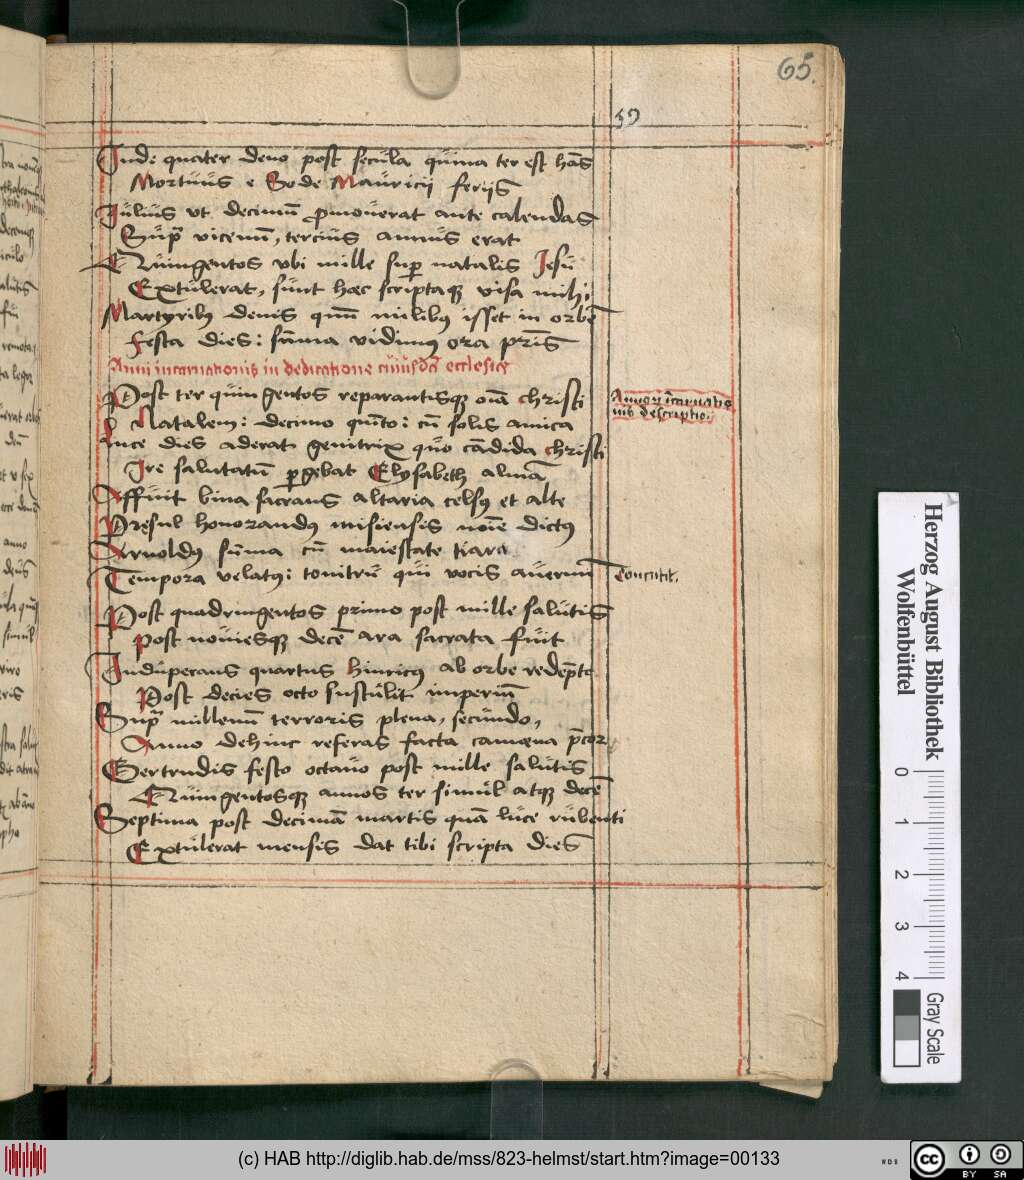 65.
59
Inde quater deno post secula quina ter est hans
Mortuus e Bode Mauricij ferijs
Iulius ut decimum promouerat ante calendas
Super vicenum, tercius annus erat
Quingentos ubi mille super natalis Jesu
Extulerat, sunt haec scriptaque visa mihi
Martyribus denis quum milibus isset in orbem
Festa dies: summa vidimus ora prius
Anni incarnationis in dedicatione cuiusdam ecclesie
Post ter quingentos reparantisque omnia christi
Annorum incarnatio
nis descriptio
Natalem: decimo quinto: cum solis amica
Luce dies aderat genitrix quo candida christi
Ire salutatum pergebat Elysabeth almam
Affuit bina sacrans altaria celsus et alte
Presul honorandus misiensis nomine dictus
Arnoldus summa cum maiestate tiara
Tempora velatus: tonitru qui vocis auernum
Concutit.
Post quadringentos primo post mille salutis
post nouiesque decem ara sacrata fuit
Induperans quartus hinricus ab orbe redempto
Post decies octo sustulit imperium
Super millenum terroris plena, secundo,
Anno dehinc referas facta camoena precor
Gertrudis festo octauo post mille salutis
Quingentosque annos ter simul atque decem
Septima post decimam martis quam luce rubenti
Extulerat mensis dat tibi scripta dies
Herzog August Bibliothek
Wolfenbüttel
0 1 2 3 4
Gray Scale
(c) HAB http://diglib.hab.de/mss/823-helmst/start.htm?image=00133
WDB
cc BY SA